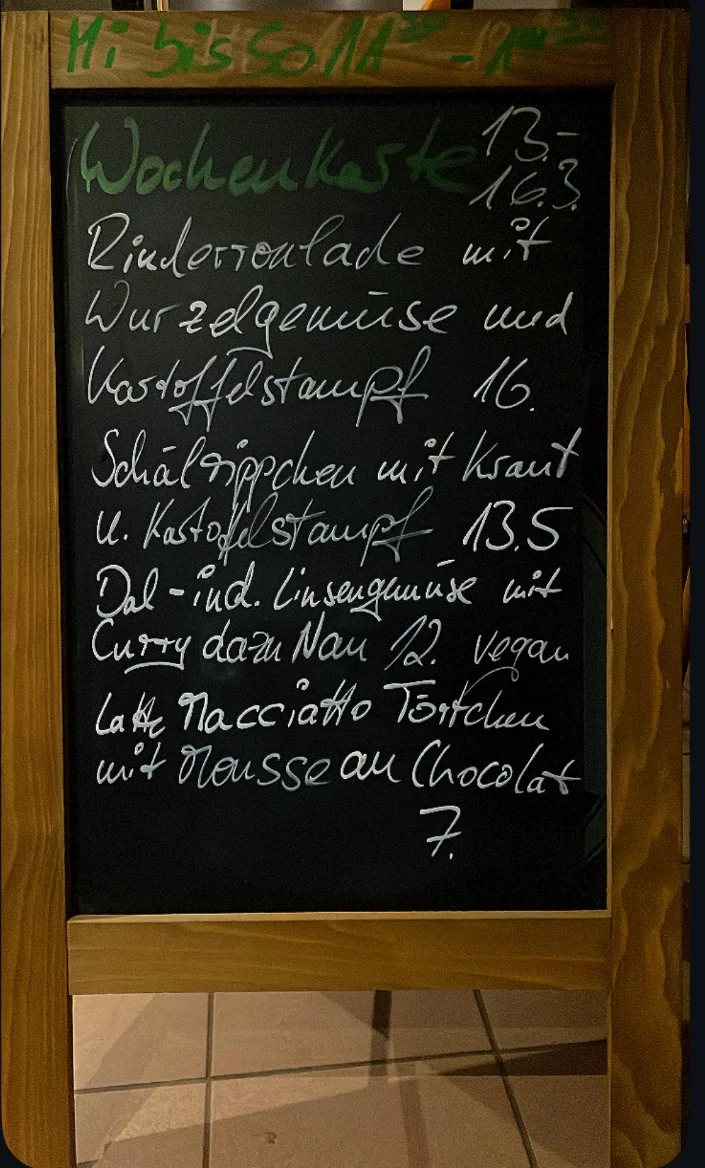 Mi bis So 11³⁰ -
Wochenkarte 13.-
16.3.
Rinderroulade mit
Wurzelgemüse und
Kartoffelstampf 16.
Schälrippchen mit Kraut
u. Kartoffelstampf 13.5
Dal - ind. Linsengemüse mit
Curry dazu Nan 12. vegan
Latte Macciatto Törtchen
mit Mousse au Chocolat
7.